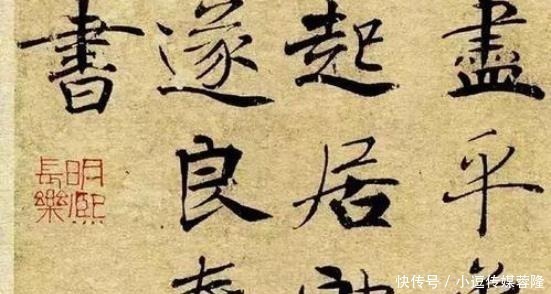 盡平
起居
遂良
書
明熙
長樂
快传号／小逗传媒蓉隆